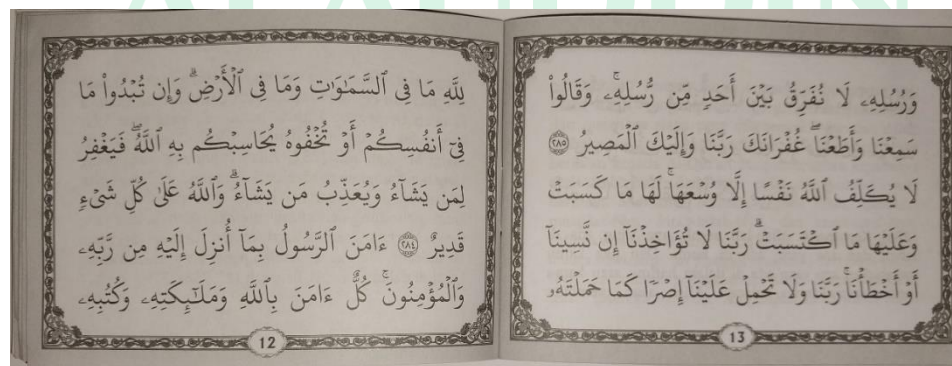 لِلَّهِ مَا فِي ٱلسَّمَـٰوَٰتِ وَمَا فِي ٱلْأَرْضِۗ وَإِن تُبْدُوا۟ مَا
فِىٓ أَنفُسِكُمْ أَوْ تُخْفُوهُ يُحَاسِبْكُم بِهِ ٱللَّهُۖ فَيَغْفِرُ
لِمَن يَشَآءُ وَيُعَذِّبُ مَن يَشَآءُۗ وَٱللَّهُ عَلَىٰ كُلِّ شَىْءٍ
قَدِيرٌ ٢٨٤ ءَامَنَ ٱلرَّسُولُ بِمَآ أُنزِلَ إِلَيْهِ مِن رَّبِّهِۦ
وَٱلْمُؤْمِنُونَۚ كُلٌّ ءَامَنَ بِٱللَّهِ وَمَلَـٰٓئِكَتِهِۦ وَكُتُبِهِۦ
12
وَرُسُلِهِۦ لَا نُفَرِّقُ بَيْنَ أَحَدٍ مِّن رُّسُلِهِۦۚ وَقَالُوا۟
سَمِعْنَا وَأَطَعْنَاۖ غُفْرَانَكَ رَبَّنَا وَإِلَيْكَ ٱلْمَصِيرُ ٢٨٥
لَا يُكَلِّفُ ٱللَّهُ نَفْسًا إِلَّا وُسْعَهَاۚ لَهَا مَا كَسَبَتْ
وَعَلَيْهَا مَا ٱكْتَسَبَتْۗ رَبَّنَا لَا تُؤَاخِذْنَآ إِن نَّسِينَآ
أَوْ أَخْطَأْنَاۚ رَبَّنَا وَلَا تَحْمِلْ عَلَيْنَآ إِصْرًا كَمَا حَمَلْتَهُۥ
13